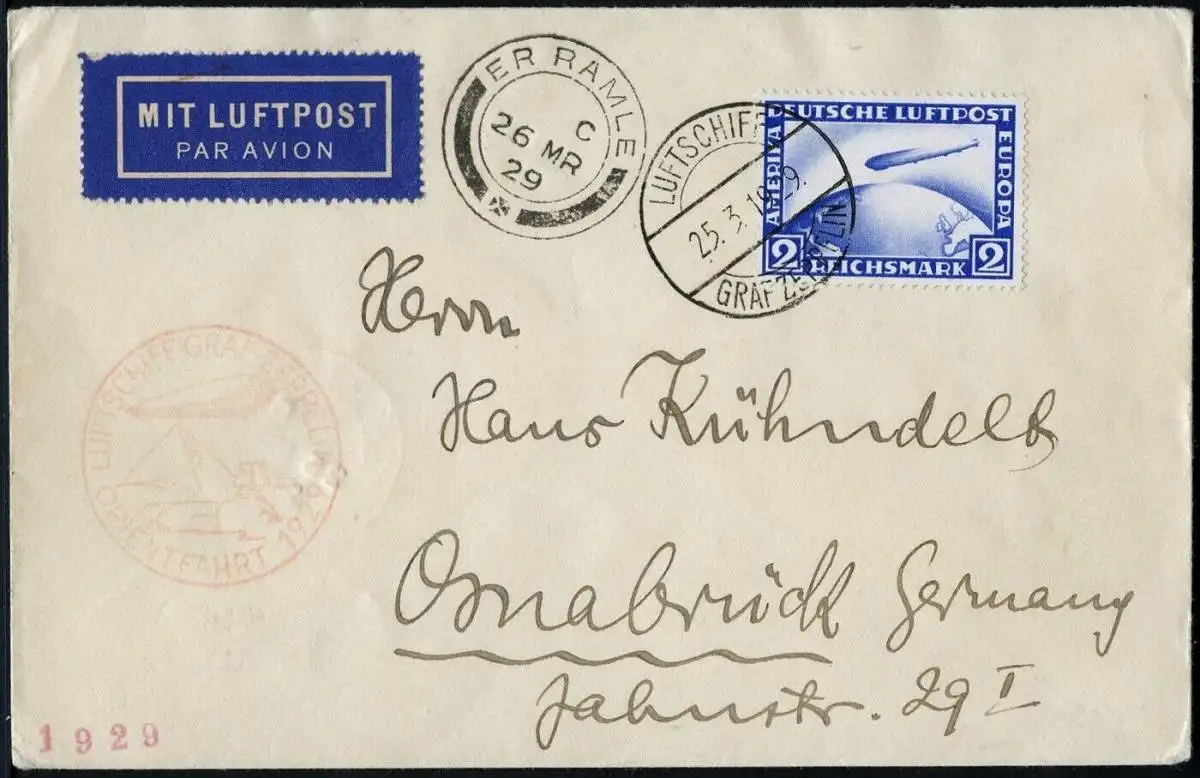 MIT LUFTPOST
PAR AVION
ER RAMLE
C
26 MR
29
LUFTSCHIFF
25.3.1929.
GRAF ZEPPELIN
DEUTSCHE LUFTPOST
AMERIKA
EUROPA
2 REICHSMARK 2
Herrn
Hans Kühndelt
Osnabrück Germany
Jahnstr. 29 I
LUFTSCHIFF GRAF ZEPPELIN
ORIENTFAHRT 1929
1929